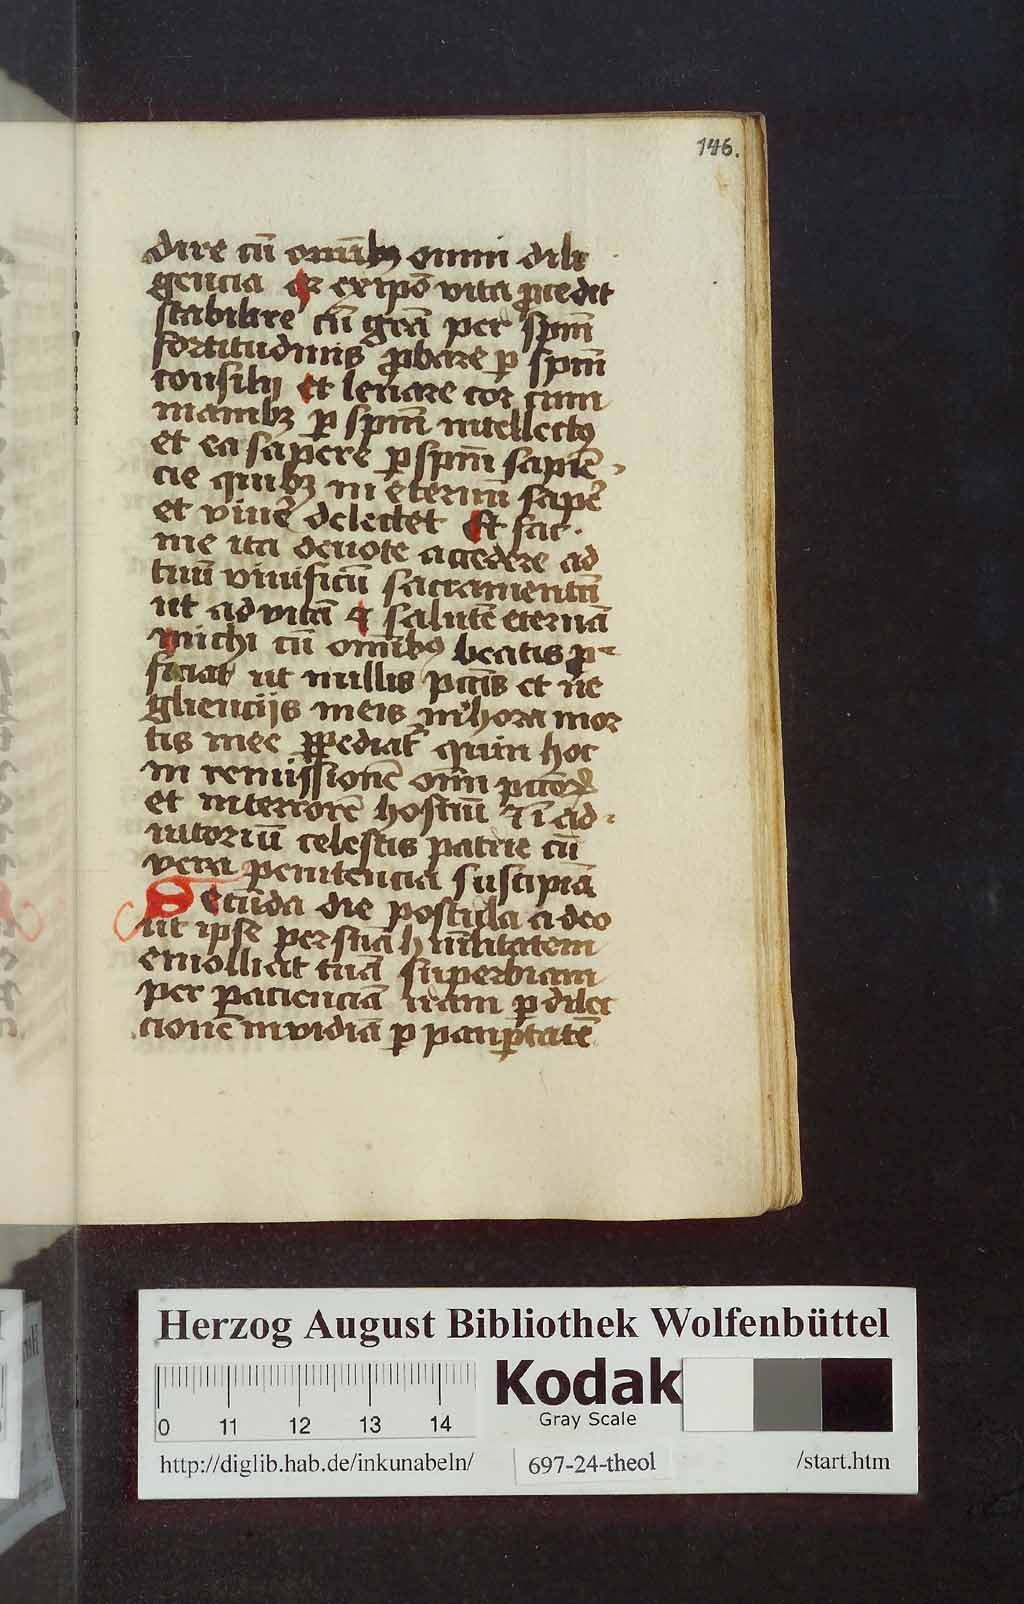 146.
dire cū om̄ibꝰ omni dili
gencia qꝛ ex ip̄o vita procedit
stabilire cū grā per sp̄m
fortitudinis ꝓbare ꝑ sp̄m
consilij et leuare cor cum
manibꝫ ꝑ sp̄m intellectꝰ
et ea sapere ꝑ sp̄m sapiē
cie quibꝫ in eternū sape̾
et viue̾ delectet Et fac
me ita deuote accedere ad
tuū viuificū sacramentū
ut ad vitā et salutē eternā
michi cū om̄ibꝰ beatis ꝓ
ficiat ut nullis pctīs et ne
gliencijs meis in hora mor
tis mee
quin hoc
in remissionē om̄i pctōꝝ
et in terrorē hostiū et ī ad
iutoriū celestis patrie cū
vera penitencia suscipiā
Secūda die postula a deo
ut ipse per suā humilitatem
emolliat tuā superbiam
per pacienciā iram ꝑ dilec
cionē invidiā ꝑ paupertatē
Herzog August Bibliothek Wolfenbüttel
0 11 12 13 14
Kodak
Gray Scale
http://diglib.hab.de/inkunabeln/ 697-24-theol /start.htm